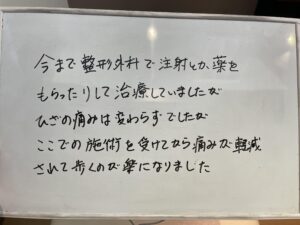 今まで整形外科で注射とか薬を
もらったりして治療していましたが
ひざの痛みは変わらずでしたが
ここでの施術を受けてから痛みが軽減
されて歩くのが楽になりました